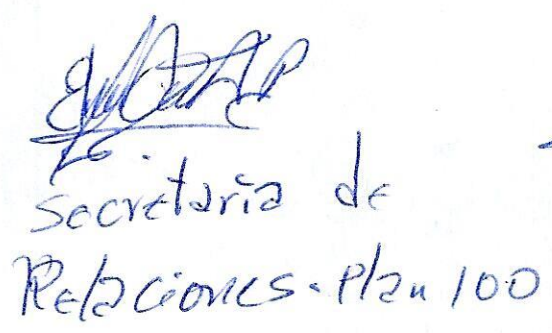 Secretaria de
Relaciones. Plan 100